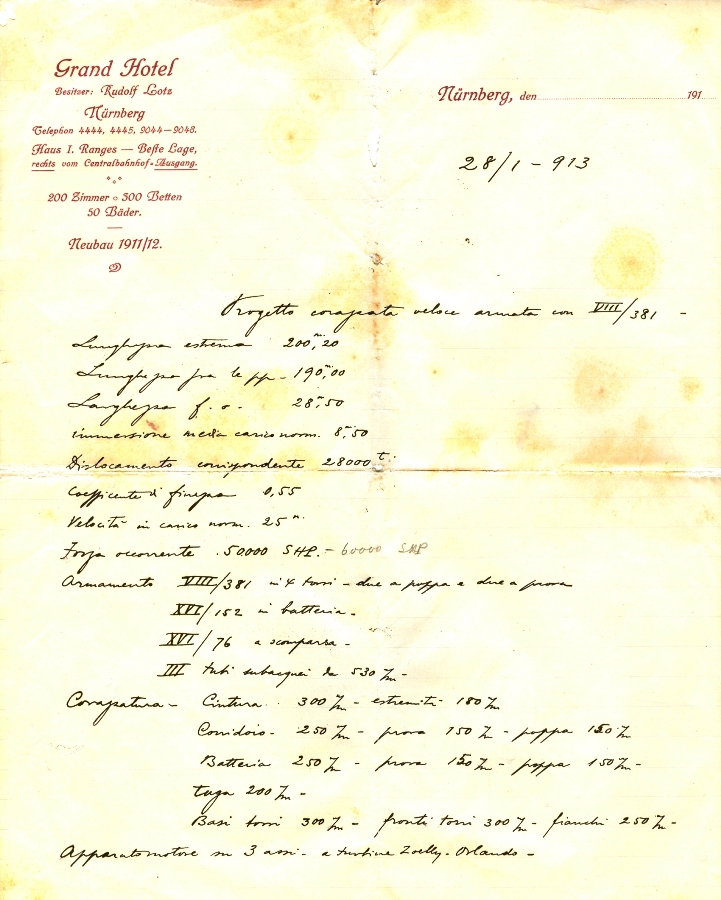 Grand Hotel
Besitzer: Rudolf Lotz
Nürnberg
Telephon 4444, 4445, 9044—9048.
Haus I. Ranges — Beste Lage,
rechts vom Centralbahnhof-Ausgang.
200 Zimmer o 300 Betten
50 Bäder.
Neubau 1911/12.
Nürnberg, den 191
28/1 - 913
Progetto corazzata veloce armata con VIII/381 -
Lunghezza estrema 200,m20
Lunghezza fra le pp - 190,m00
Larghezza f. o. 28,m50
immersione media carico norm. 8,m50
Dislocamento corrispondente 28000 t.
Coefficente di finezza 0,55
Velocità in carico norm. 25 n.
Forza occorrente . 50000 SHP. - 60000 SHP
Armamento VIII/381 in 4 torri - due a poppa e due a prora
XVI/152 in batteria -
XVI/76 a scomparsa -
III tubi subacquei da 530 m/m -
Corazzatura - Cintura . 300 m/m - estremità 180 m/m
Corridoio - 250 m/m - prora 150 m/m - poppa 150 m/m
Batteria 250 m/m - prora 150 m/m - poppa 150 m/m -
tuga 200 m/m -
Basi torri 300 m/m - fronti torri 300 m/m - fianchi 250 m/m -
Apparato motore su 3 assi - a turbine Zoelly - Orlando -